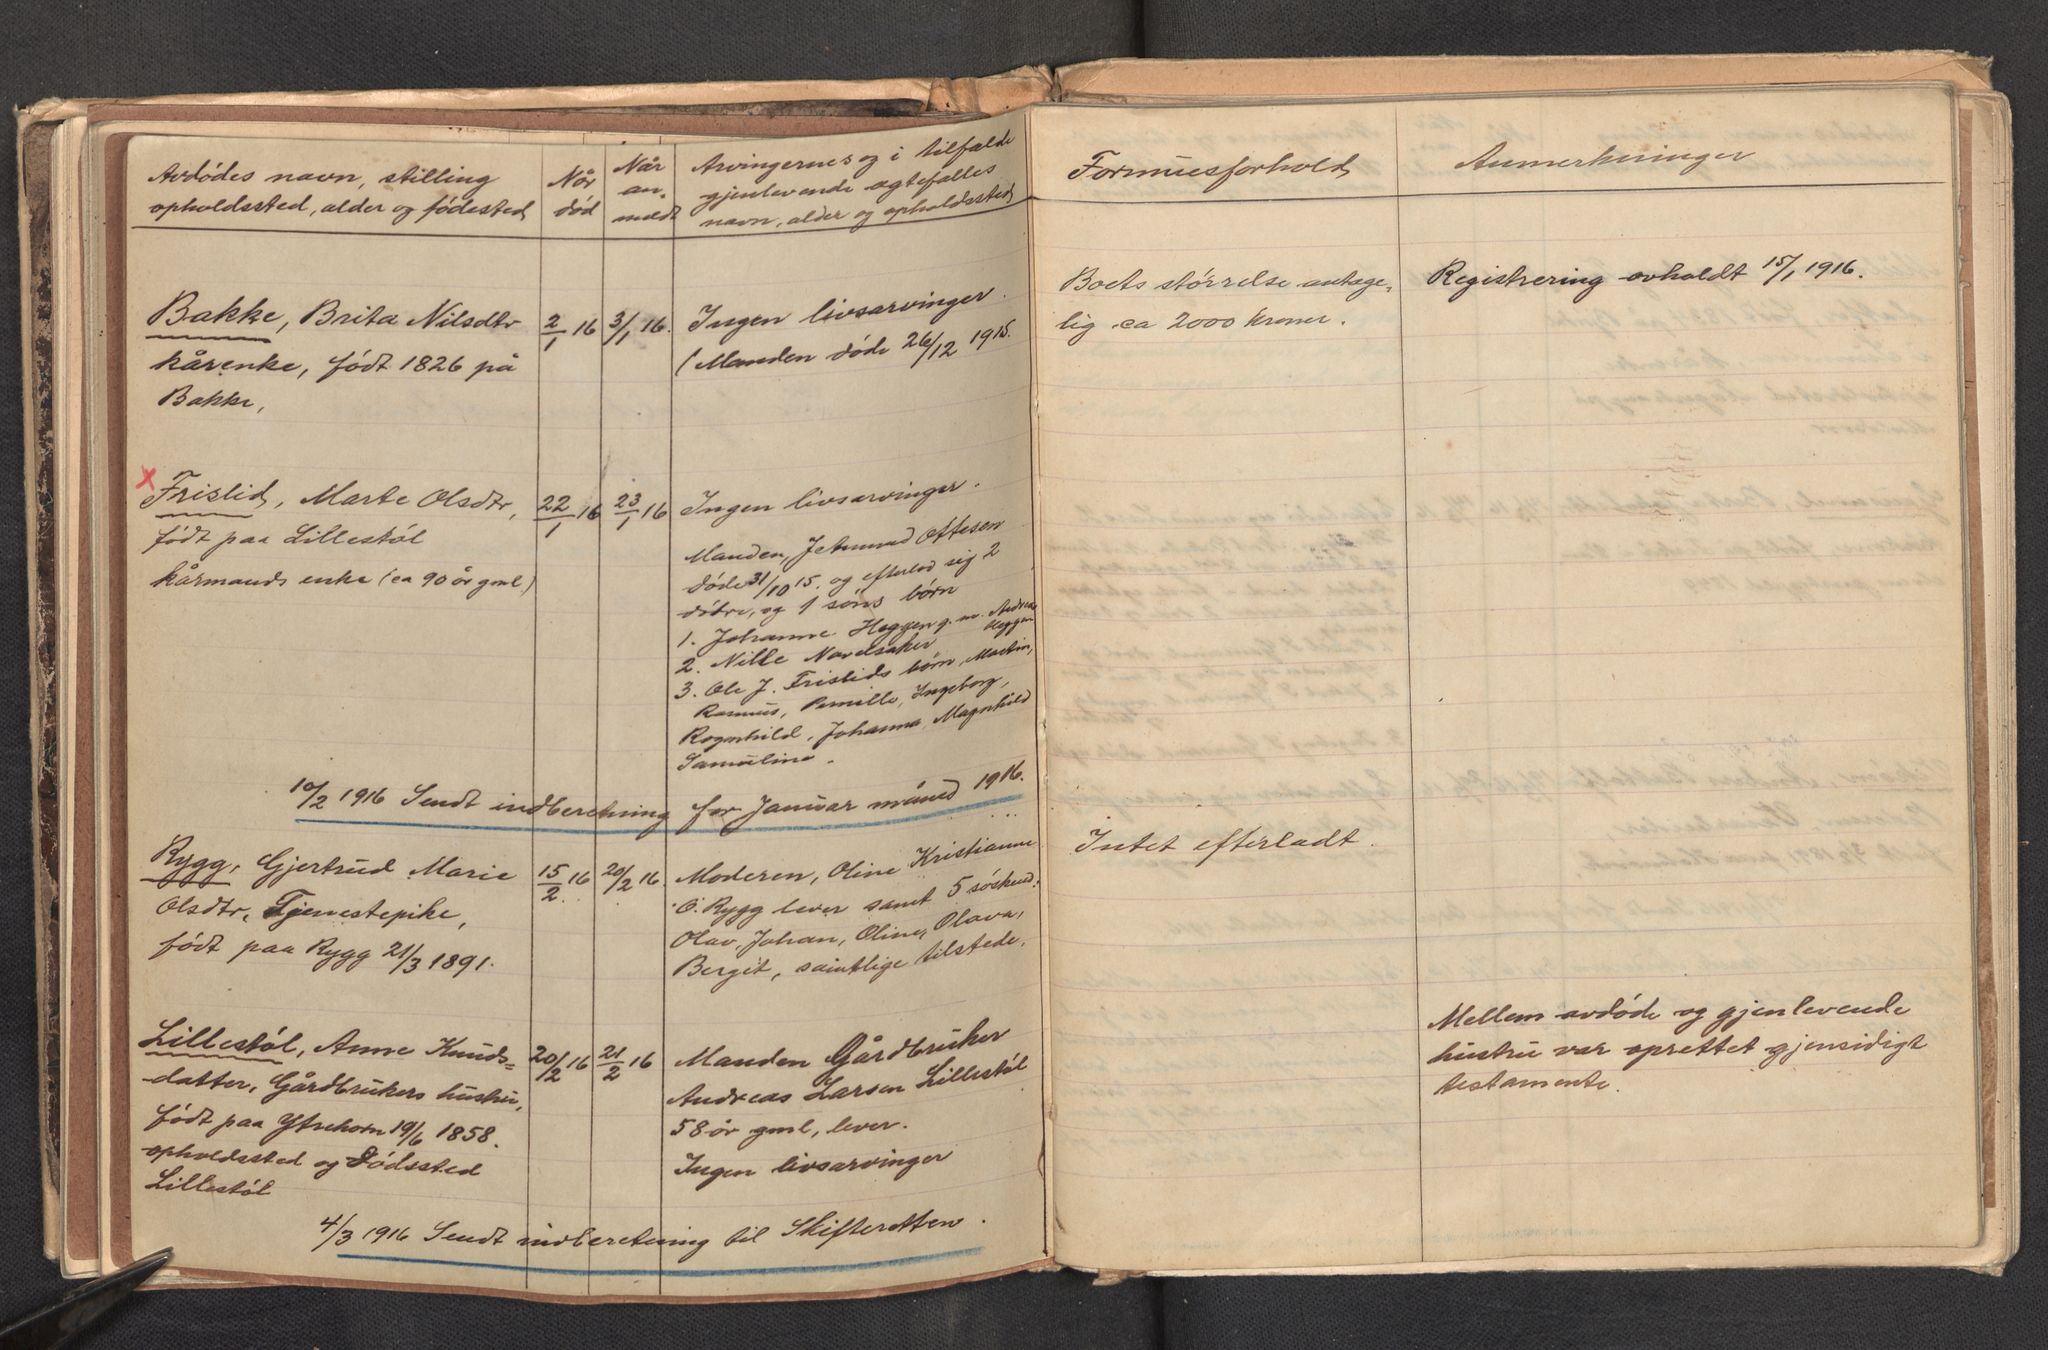 Avdødes navn, stilling
opholdssted, alder og fødested
Når
død
Når
an-
meldt
Arvingernes og i tilfælde
gjenlevende ægtefælles
navn, alder og opholdssted
Formuesforhold
Anmerkninger
Bakke, Brita Nilsdtr
kårenke, født 1826 på
Bakke,
2/1 16
3/1 16.
Ingen livsarvinger.
(Manden døde 26/12 1915.
Boets størrelse antage-
lig ca 2000 kroner.
Registrering avholdt 15/1 1916.
x
Fristid, Marte Olsdtr,
født paa Lillestøl
kårmands enke (ca 90 år gml)
22/1 16
23/1 16
Ingen livsarvinger.
Manden, Jetmund Ottesen
døde 31/10 15. og efterlod sig 2
døtre, og 1 søns børn
1. Johanne Heggen g. m. Andreas
Heggen
2. Nille Navelsaker
3. Ole J. Fristids børn, Martin,
Rasmus, Pernille, Ingeborg,
Ragnhild, Johanna, Magnhild
Samuline.
10/2 1916 Sendt indberetning for Januar måned 1916.
Rygg, Gjertrud Marie
Olsdtr, Tjenestepike,
født paa Rygg 21/3 1891.
15/2 16
20/2 16.
Moderen, Oline Kristianne
O. Rygg lever samt 5 søskend:
Olav, Johan, Oline, Olava,
Bergit, samtlige tilstede.
Intet efterladt.
Lillestøl, Anne Knuds-
datter, Gårdbrukers hustru,
født paa Ytrehorn 19/6 1858.
opholdssted og dødssted
Lillestøl
20/2 16
21/2 16
Manden Gårdbruker
Andreas Larsen Lillestøl
58 år gml, lever.
Ingen livsarvinger
Mellem avdøde og gjenlevende
hustru var oprettet gjensidigt
testamente.
4/3 1916 Sendt indberetning til Skifteretten.